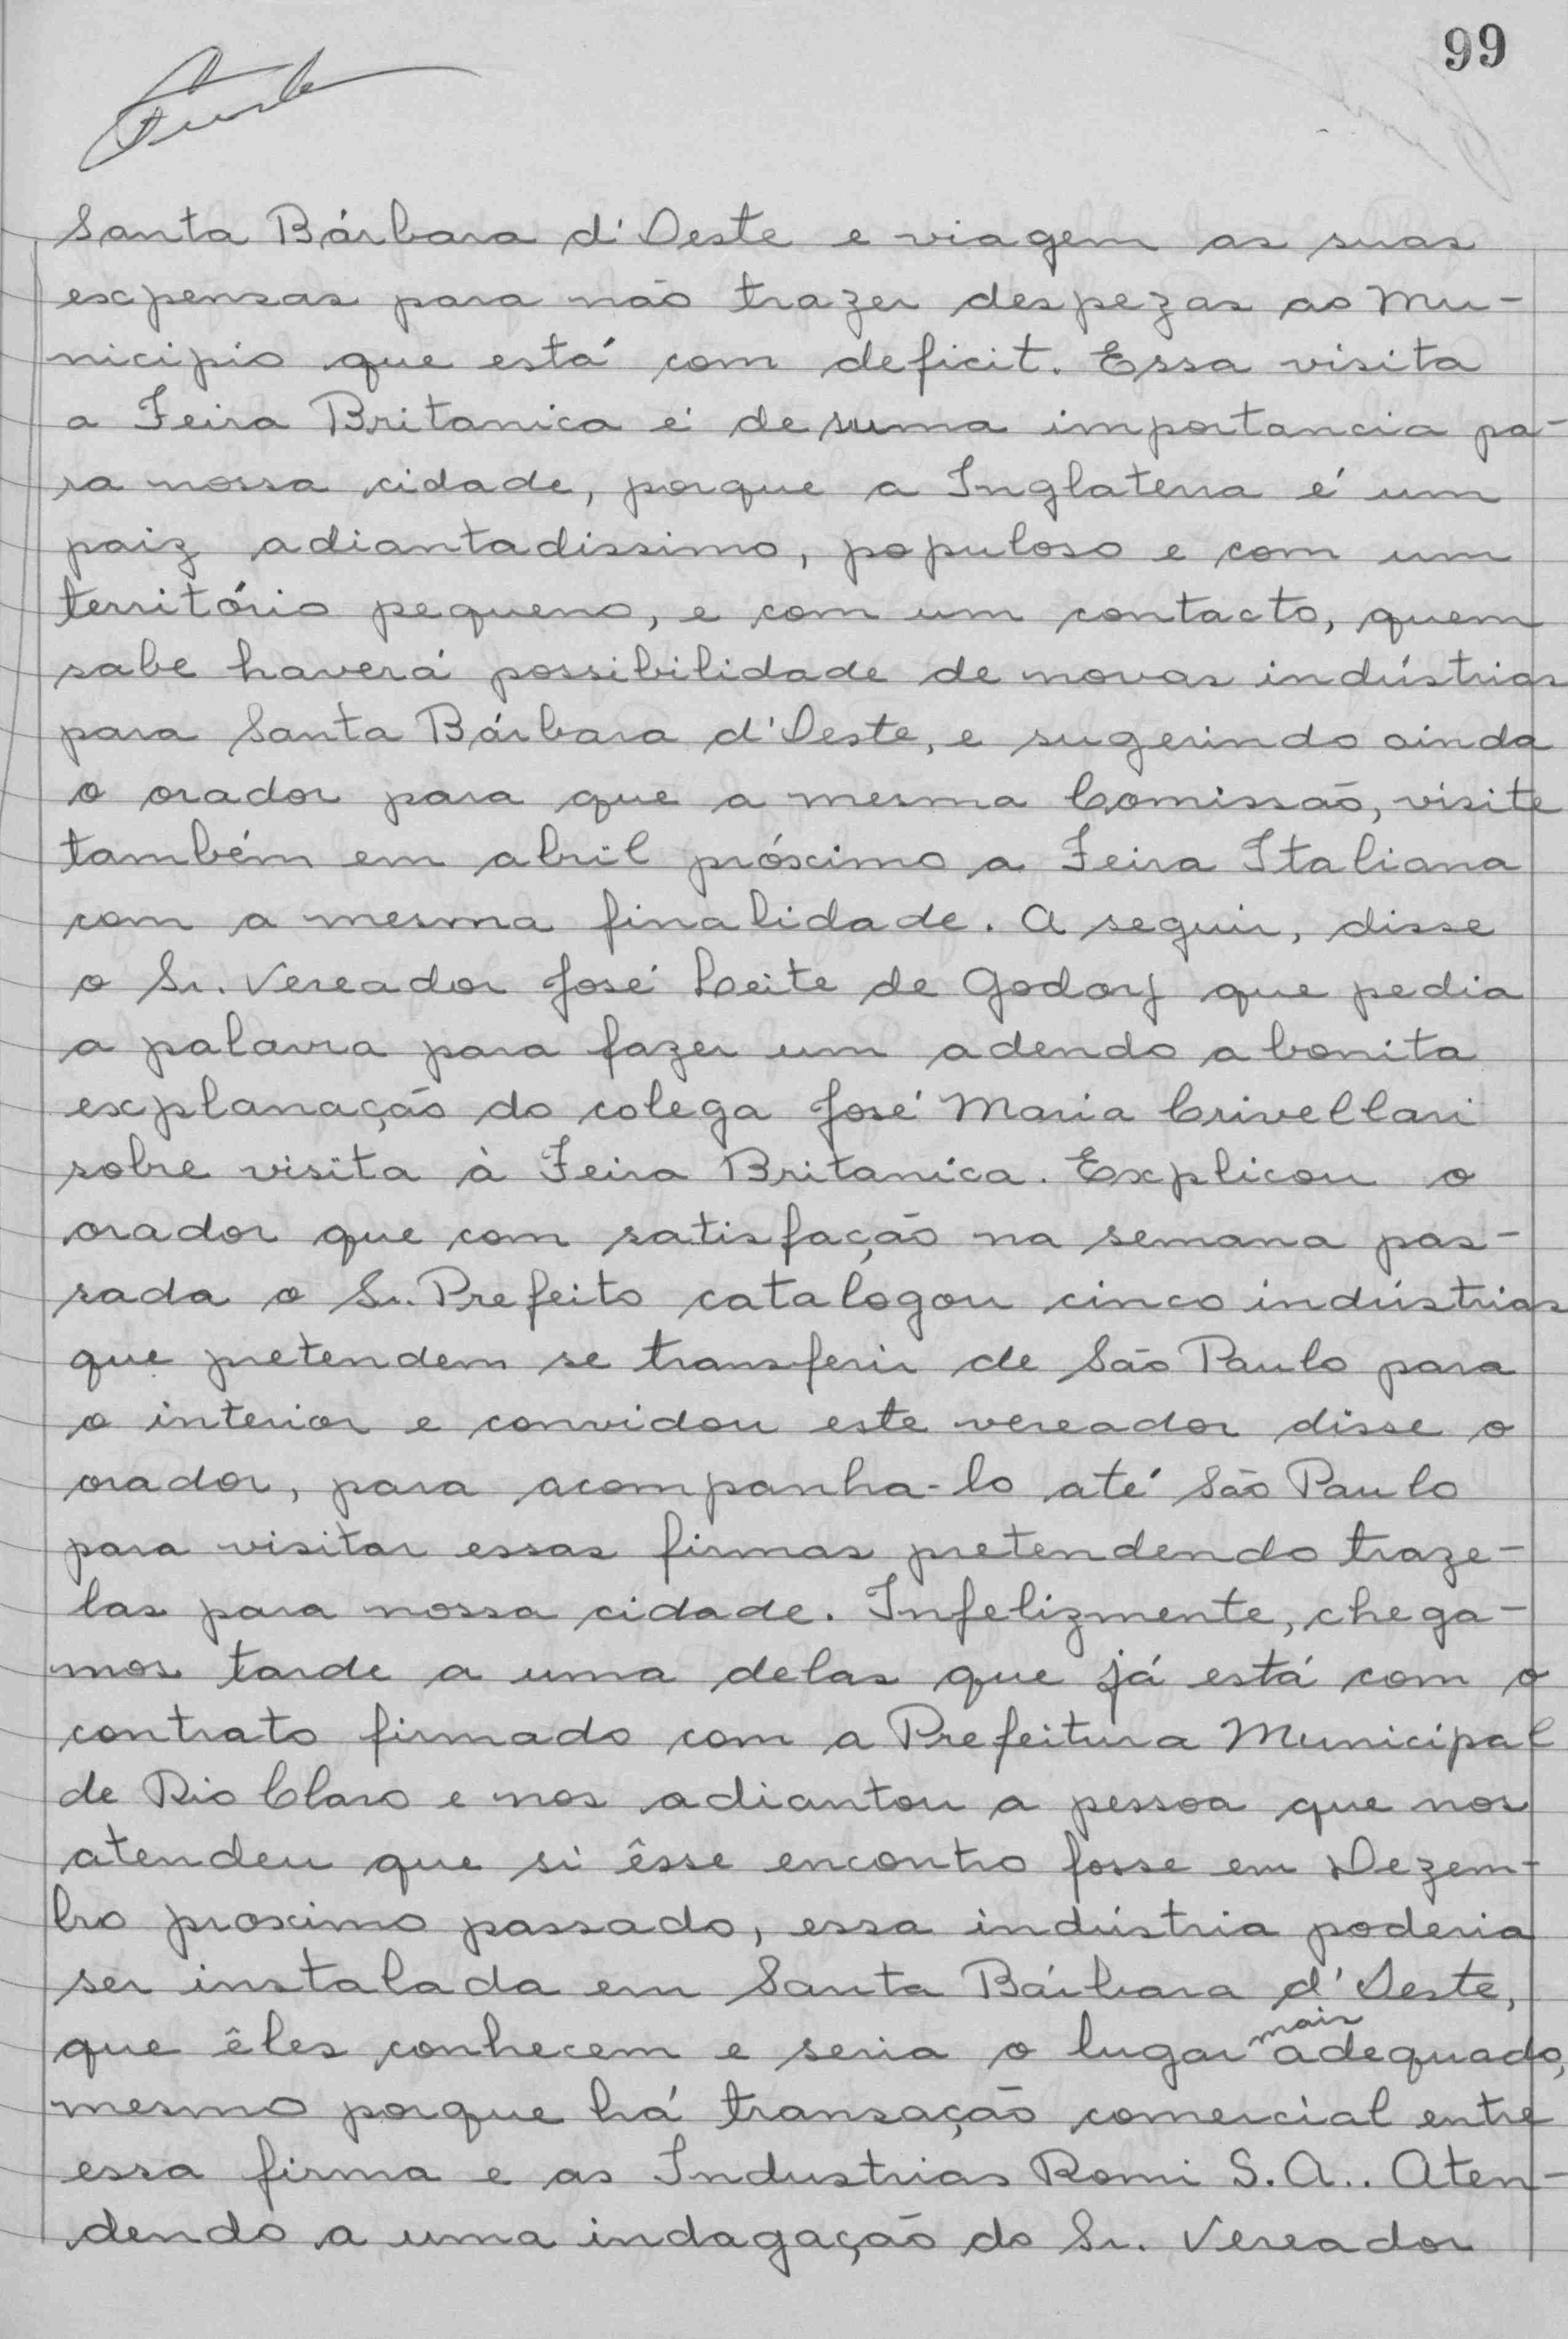 99
Santa Bárbara d'Oeste e viagem as suas
expensas para não trazer despezas ao Mu-
nicipio que está com deficit. Essa visita
a Feira Britanica é de suma importancia pa-
ra nossa cidade, porque a Inglaterra é um
paiz adiantadissimo, populoso e com um
território pequeno, e com um contacto, quem
sabe haverá possibilidade de novas indústrias
para Santa Bárbara d'Oeste, e sugerindo ainda
o orador para que a mesma Comissão, visite
também em abril próximo a Feira Italiana
com a mesma finalidade. A seguir, disse
o Sr. Vereador José Leite de Godoy que pedia
a palavra para fazer um adendo a bonita
explanação do colega José Maria Crivellari
sobre visita à Feira Britanica. Explicou o
orador que com satisfação na semana pas-
sada o Sr. Prefeito catalogou cinco indústrias
que pretendem se transferir de São Paulo para
o interior e convidou este vereador disse o
orador, para acompanha-lo até São Paulo
para visitar essas firmas pretendendo traze-
las para nossa cidade. Infelizmente, chega-
mos tarde a uma delas que já está com o
contrato firmado com a Prefeitura Municipal
de Rio Claro e nos adiantou a pessoa que nos
atendeu que si êsse encontro fosse em Dezem-
bro proximo passado, essa indústria poderia
ser instalada em Santa Bárbara d'Oeste,
que êles conhecem e seria o lugar mais adequado,
mesmo porque há transação comercial entre
essa firma e as Industrias Romi S.A.. Aten-
dendo a uma indagação do Sr. Vereador